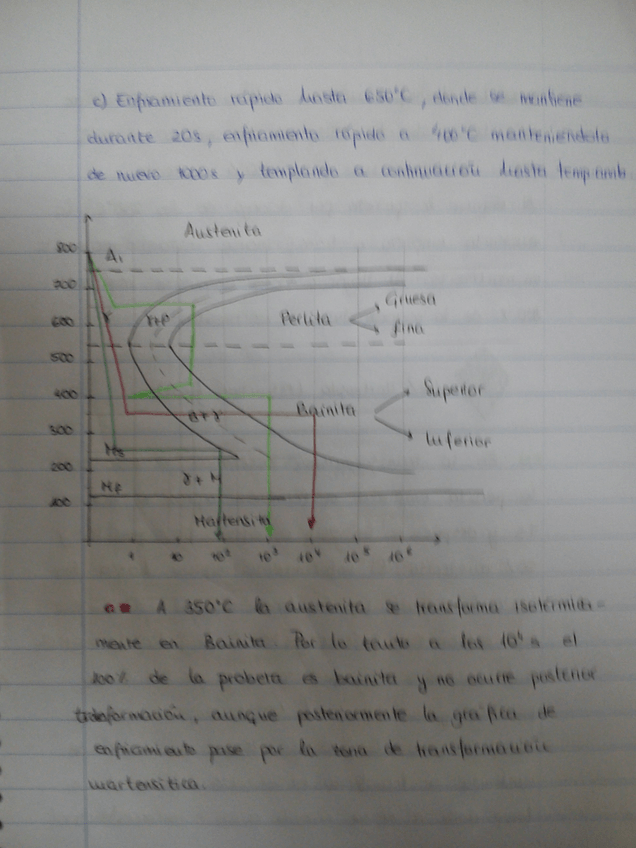 c) Enfriamiento rápido hasta 650°C, donde se mantiene
durante 20s, enfriamiento rápido a 400°C manteniéndola
de nuevo 1000s y templando a continuación hasta temp amb.
Austenita
800
A₁
700
Gruesa
600
γ+P
Perlita
Fina
500
400
Superior
Bainita
300
Inferior
Ms
200
γ + M
Mf
100
Martensita
1
10
10²
10³
10⁴
10⁵
10⁶
s
A 350°C la austenita se transforma isotérmida-
mente en Bainita. Por lo tanto a los 10⁴ s el
100% de la probeta es bainita y no ocurre posterior
transformación, aunque posteriormente la gráfica de
enfriamiento pase por la zona de transformación
martensítica.